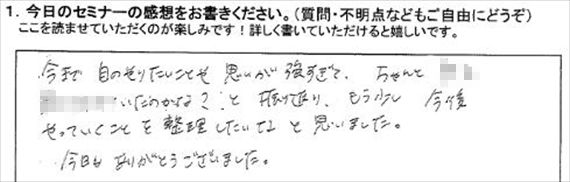 1. 今日のセミナーの感想をお書きください。(質問・不明点などもご自由にどうぞ)
ここを読ませていただくのが楽しみです！詳しく書いていただけると嬉しいです。
今まで 自のやりたいことや 思いが 強すぎて、ちゃんと
いたのかな？と 振り返り、もう少し 今後
やっていくことを 整理したいなと 思いました。
今日も ありがとうございました。